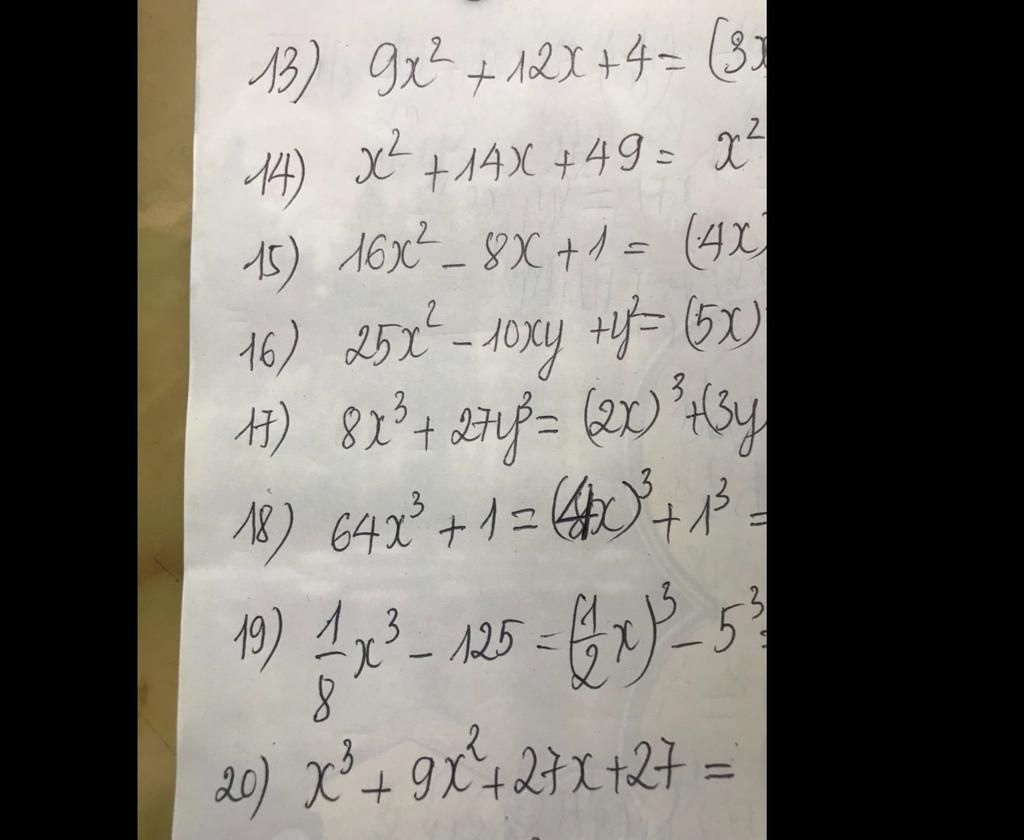 13) 9x² + 12x + 4 = (3x
14) x² + 14x + 49 = x²
15) 16x² - 8x + 1 = (4x)
16) 25x² - 10xy + y² = (5x)
17) 8x³ + 27y³ = (2x)³ + (3y
18) 64x³ + 1 = (4x)³ + 1³ =
19) 1/8 x³ - 125 = (1/2 x)³ - 5³ =
20) x³ + 9x² + 27x + 27 =